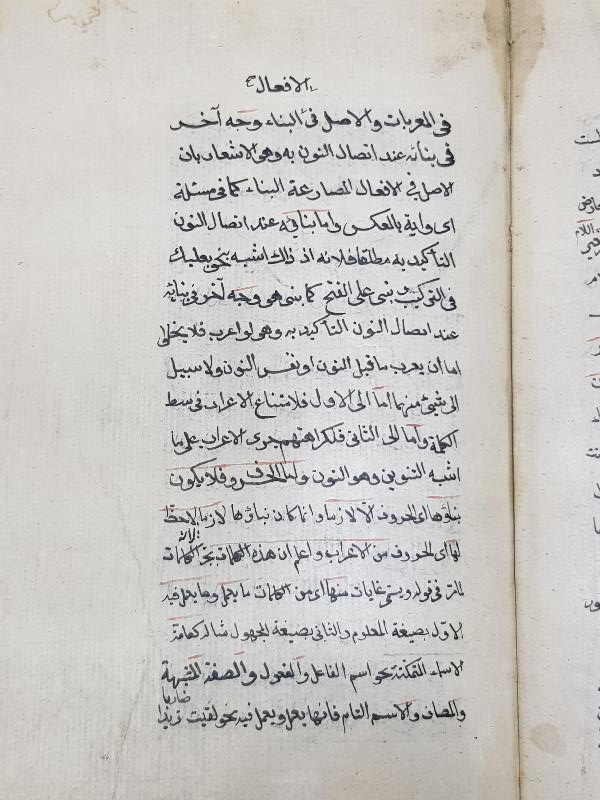 الافعال
فى المعربات والاصل فى البناء وجه آخر
فى بنائه عند اتصال النون به وهى الاشعار بان
الاصل فى الافعال المضارعة البناء كما فى مسئلة
اى واية بالعكس واما بنائه عند اتصال النون
التأكيد به مطلقا فلانه اذ ذلك اشبه بنحو بعلبك
فى التركيب وبنى على الفتح كما بنى هى وجه آخر فى بنائه
عند اتصال النون التأكيد به وهى لو اعرب فلا يخلو
اما ان يعرب ما قبل النون او نفس النون ولا سبيل
الى شيئ منهما اما الى الاول فلامتناع الاعراب فى وسط
الكلمة واما الى الثانى فلكراهتهم جرى الاعراب على ما
اشبه التنوين وهو النون واما الحروف فلا يكون
بناؤها اى الحروف الا لازما وانما كان بناؤها لازما لاحظ
لها اى الحروف من الاعراب واعلم ان هذه الكلمات نحو الكلمات
فى قوله ويسمى غايات منها اى من الكلمات ما يعمل وما يعمل فيه
الاول بصيغة المعلوم والثانى بصيغة المجهول مثاله كعامة
الاسماء المتمكنة نحو اسم الفاعل والمفعول والصفة المشبهة
والمضاف والاسم التام فانها يعمل ويعمل فيه نحو لقيت زيدا
ضاربا